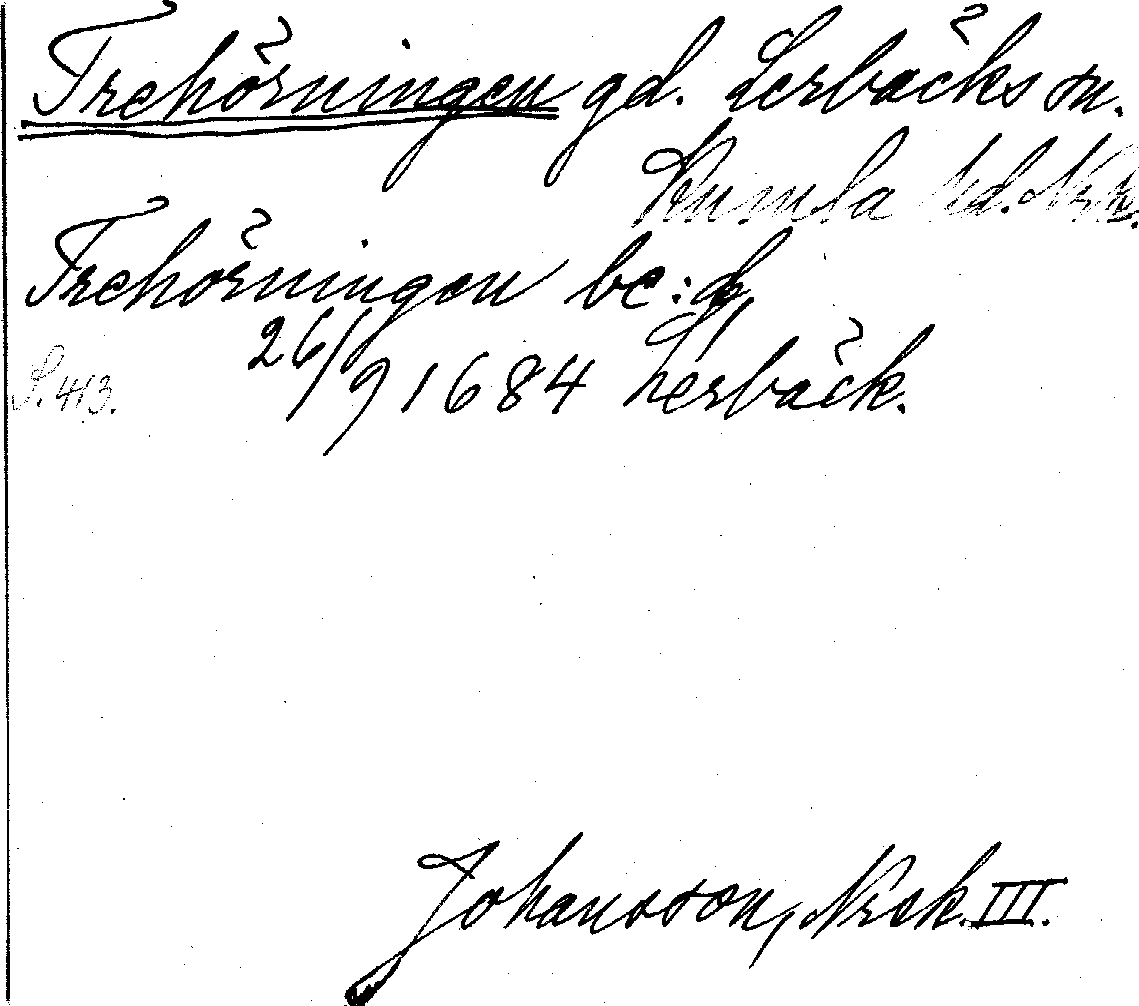 Trehörningen gd. Lerbäcks sn.
Kumla hd. Nrk.
Trehörningen be:d
26/9 1684 Lerbäck.
S. 413.
Johansson, Nrek. III.